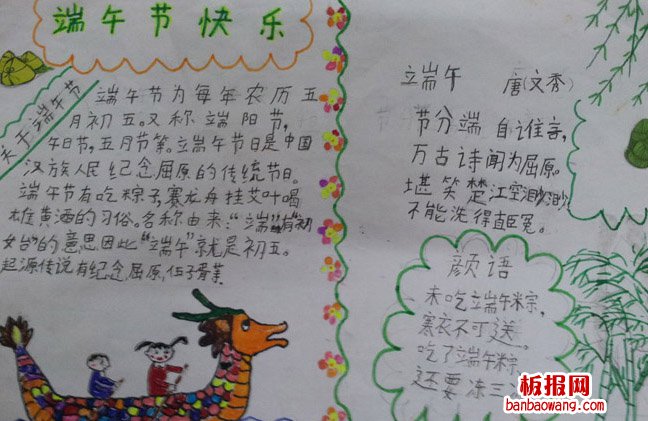 端午节快乐
关于端午节
端午节为每年农历五
月初五。又称端阳节,
午日节,五月节等。端午节日是中国
汉族人民纪念屈原的传统节日。
端午节有吃粽子,赛龙舟挂艾叶喝
雄黄酒的习俗。名称由来:“端”有“初
始”的意思因此“端午”就是初五。
起源传说有纪念屈原,伍子胥
端午 唐(文秀)
节分端 自谁言,
万古诗闻为屈原。
堪笑楚江空渺渺
不能洗得直臣冤。
颜语
未吃端午粽,
寒衣不可送。
吃了端午粽
还要冻三
板报网
banbaowang.com